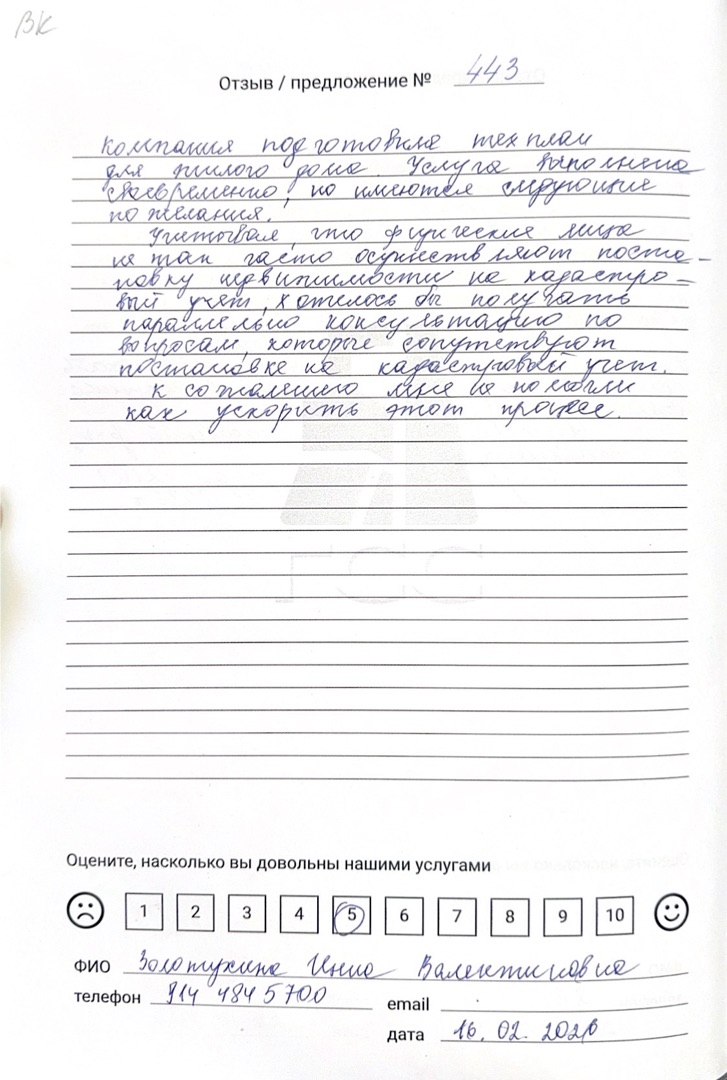 ВК
Отзыв / предложение № 443
Компания подготовила техплан
для жилого дома. Услуга выполнена
своевременно, но имеются следующие
пожелания.
Учитывая, что физические лица
не так часто осуществляют поста-
новку недвижимости на кадастро-
вый учет, хотелось бы получать
параллельно консультацию по
вопросам, которые сопутствуют
постановке на кадастровый учет.
К сожалению мне не помогли
как ускорить этот процесс.
ГСС
Оцените, насколько вы довольны нашими услугами
1 2 3 4 5 6 7 8 9 10
ФИО Золотухина Инна Валентиновна
телефон 914 484 5700
email
дата 16.02.2026